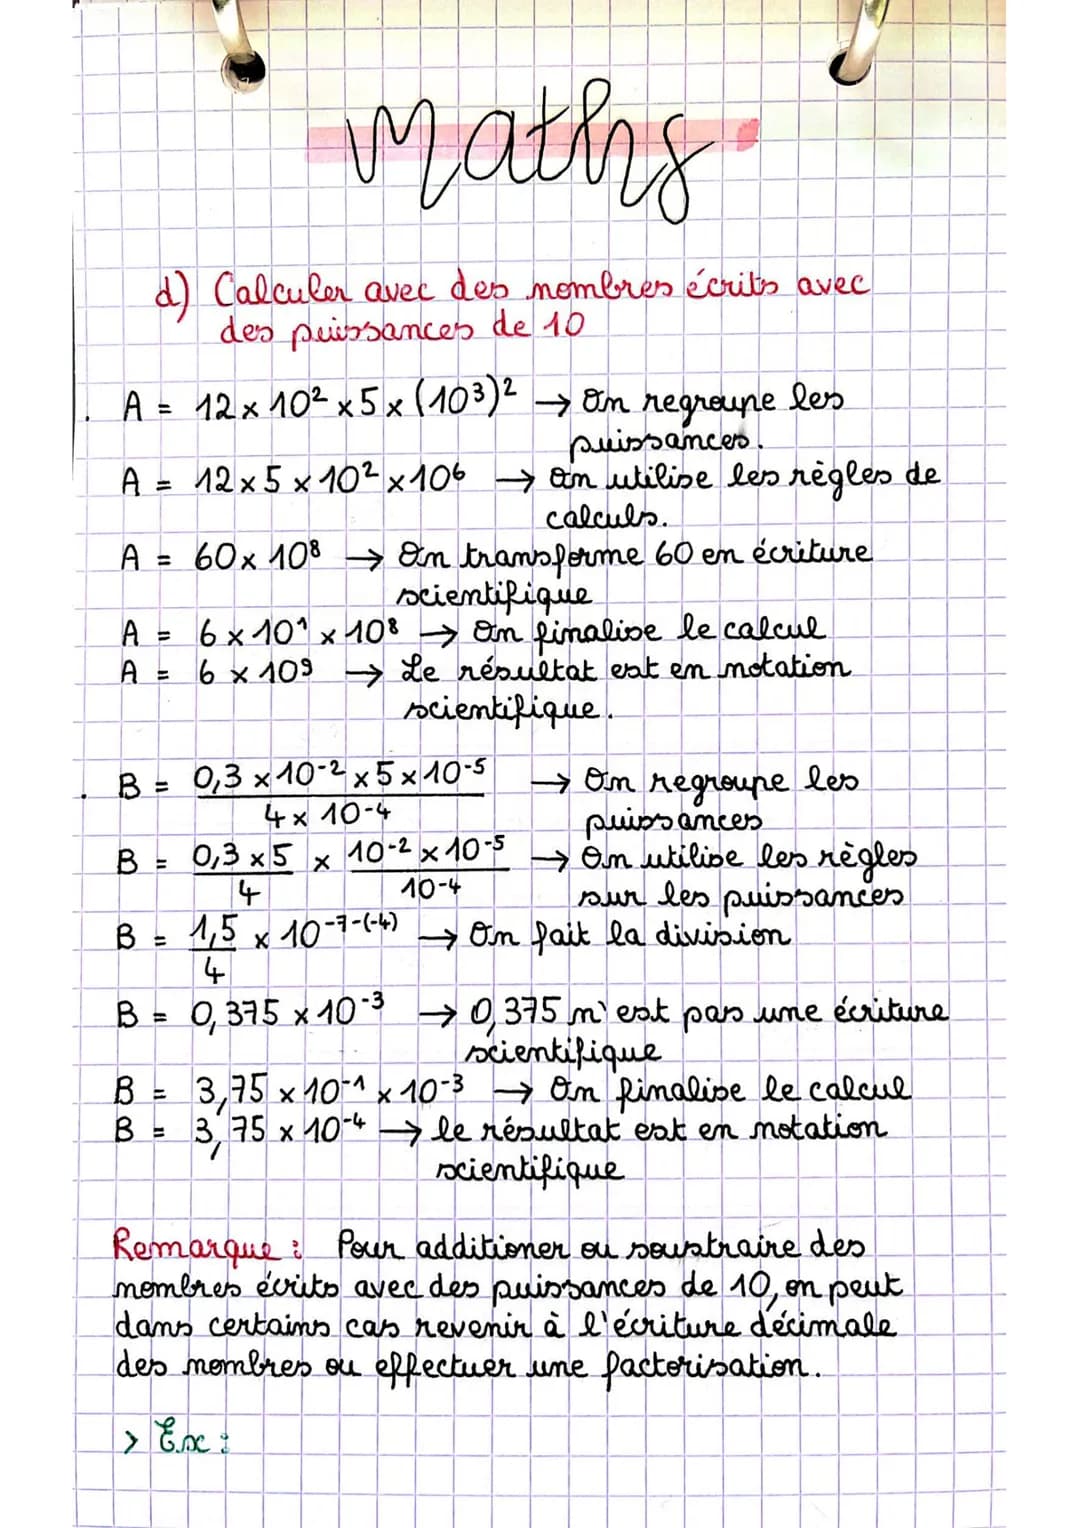 Maths
d) Calculer avec des nombres écrits avec
des puissances de 10
. A = 12 × 10² × 5 × (10³)² → On regroupe les
puissances.
A = 12 × 5 × 10² × 10⁶ → On utilise les règles de
calculs.
A = 60 × 10⁸ → On transforme 60 en écriture
scientifique
A = 6 × 10¹ × 10⁸ → On finalise le calcul
A = 6 × 10⁹ → Le résultat est en notation
scientifique.
. B = (0,3 × 10⁻² × 5 × 10⁻⁵) / (4 × 10⁻⁴) → On regroupe les
puissances
B = (0,3 × 5) / 4 × (10⁻² × 10⁻⁵) / 10⁻⁴ → On utilise les règles
sur les puissances
B = 1,5 / 4 × 10⁻⁷⁻⁽⁻⁴⁾ → On fait la division
B = 0,375 × 10⁻³ → 0,375 n'est pas une écriture
scientifique
B = 3,75 × 10⁻¹ × 10⁻³ → On finalise le calcul
B = 3,75 × 10⁻⁴ → le résultat est en notation
scientifique
Remarque : Pour additioner ou soustraire des
nombres écrits avec des puissances de 10, on peut
dans certains cas revenir à l'écriture décimale
des nombres ou effectuer une factorisation.
> Ex :